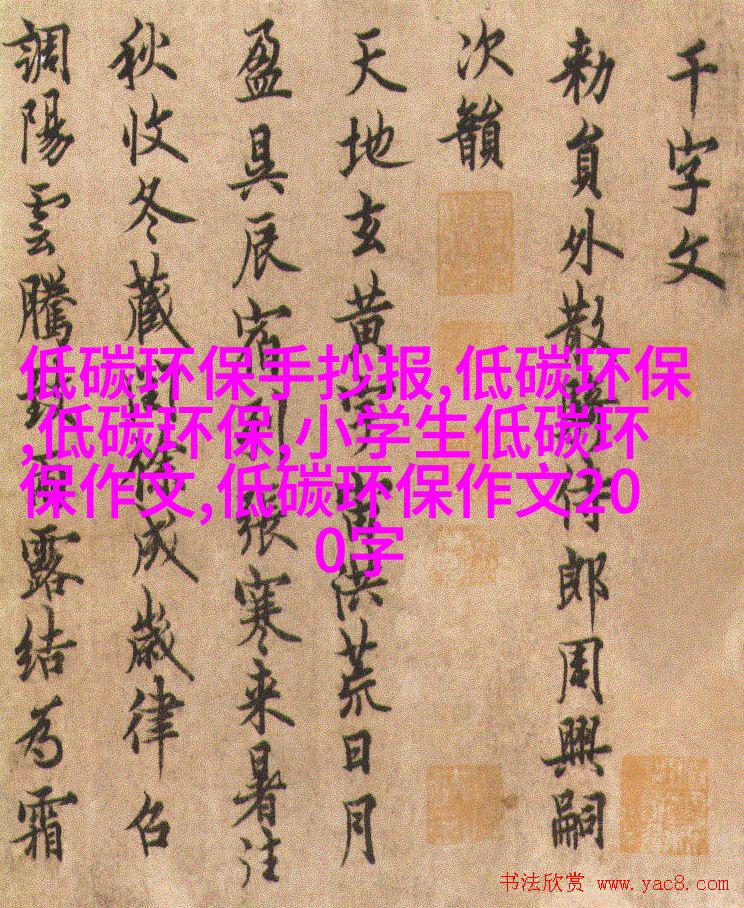 千字文
勑員外散騎侍郎周興嗣
次韻
天地玄黄宇宙洪荒日月
盈昃辰宿列張寒来暑往
秋收冬藏閏餘成歲律召
調陽雲騰致雨露結為霜
低碳环保手抄报,低碳环保
,低碳环保,小学生低碳环
保作文,低碳环保作文20
0字
书法欣赏 www.yac8.com